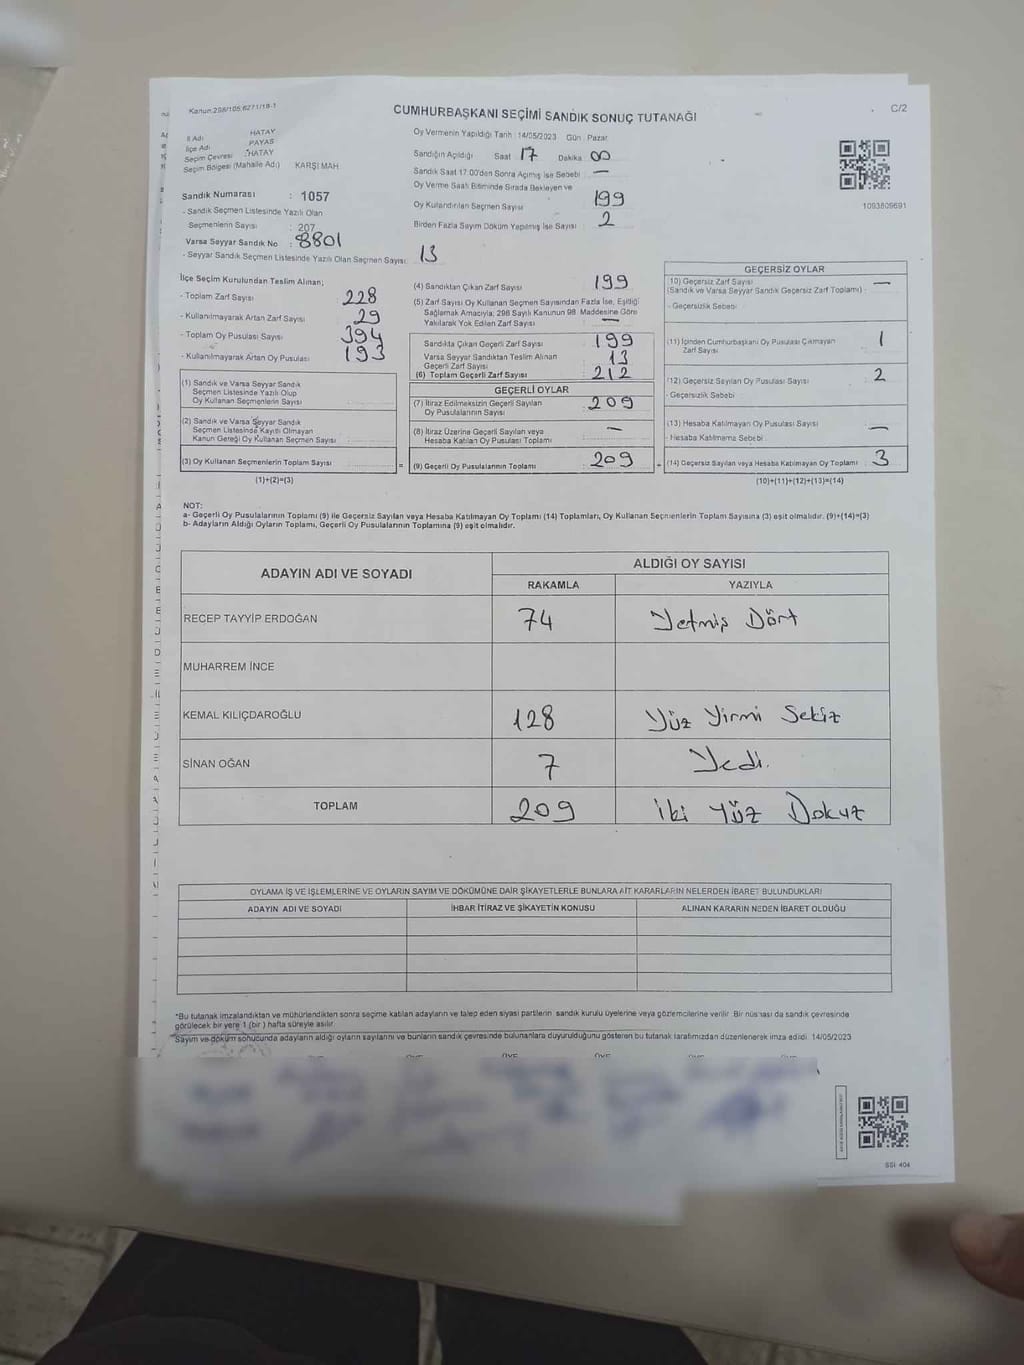 Kanun:298/105;6271/18-1
CUMHURBAŞKANI SEÇİMİ SANDIK SONUÇ TUTANAĞI
C/2
İl Adı : HATAY
İlçe Adı : PAYAS
Seçim Çevresi : HATAY
Seçim Bölgesi (Mahalle Adı) KARŞI MAH.
Sandık Numarası : 1057
- Sandık Seçmen Listesinde Yazılı Olan
Seçmenlerin Sayısı : 207
Varsa Seyyar Sandık No : 8801
- Seyyar Sandık Seçmen Listesinde Yazılı Olan Seçmen Sayısı: 13
Oy Vermenin Yapıldığı Tarih : 14/05/2023 Gün : Pazar
Sandığın Açıldığı Saat : 17 Dakika : 00
Sandık Saat 17.00'den Sonra Açılmış İse Sebebi : —
Oy Verme Saati Bitiminde Sırada Bekleyen ve
Oy Kullandırılan Seçmen Sayısı 199
Birden Fazla Sayım Döküm Yapılmış İse Sayısı : 2
1093809691
İlçe Seçim Kurulundan Teslim Alınan;
- Toplam Zarf Sayısı : 228
- Kullanılmayarak Artan Zarf Sayısı : 29
- Toplam Oy Pusulası Sayısı : 394
- Kullanılmayarak Artan Oy Pusulası : 193
(1) Sandık ve Varsa Seyyar Sandık
Seçmen Listesinde Yazılı Olup
Oy Kullanan Seçmenlerin Sayısı
(2) Sandık ve Varsa Seyyar Sandık
Seçmen Listesinde Kayıtlı Olmayan
Kanun Gereği Oy Kullanan Seçmen Sayısı
(3) Oy Kullanan Seçmenlerin Toplam Sayısı
(1)+(2)=(3)
(4) Sandıktan Çıkan Zarf Sayısı 199
(5) Zarf Sayısı Oy Kullanan Seçmen Sayısından Fazla İse, Eşitliği
Sağlamak Amacıyla, 298 Sayılı Kanunun 98. Maddesine Göre
Yakılarak Yok Edilen Zarf Sayısı : —
Sandıkta Çıkan Geçerli Zarf Sayısı : 199
Varsa Seyyar Sandıktan Teslim Alınan
Geçerli Zarf Sayısı : 13
(6) Toplam Geçerli Zarf Sayısı : 212
GEÇERLİ OYLAR
(7) İtiraz Edilmeksizin Geçerli Sayılan
Oy Pusulalarının Sayısı : 209
(8) İtiraz Üzerine Geçerli Sayılan veya
Hesaba Katılan Oy Pusulası Toplamı : —
= (9) Geçerli Oy Pusulalarının Toplamı : 209
GEÇERSİZ OYLAR
10) Geçersiz Zarf Sayısı
(Sandık ve Varsa Seyyar Sandık Geçersiz Zarf Toplamı) : —
- Geçersizlik Sebebi :
(11) İçinden Cumhurbaşkanı Oy Pusulası Çıkmayan
Zarf Sayısı : 1
(12) Geçersiz Sayılan Oy Pusulası Sayısı : 2
- Geçersizlik Sebebi :
(13) Hesaba Katılmayan Oy Pusulası Sayısı : —
- Hesaba Katılmama Sebebi :
(14) Geçersiz Sayılan veya Hesaba Katılmayan Oy Toplamı : 3
(10)+(11)+(12)+(13)=(14)
NOT:
a- Geçerli Oy Pusulalarının Toplamı (9) ile Geçersiz Sayılan veya Hesaba Katılmayan Oy Toplamı (14) Toplamları, Oy Kullanan Seçmenlerin Toplam Sayısına (3) eşit olmalıdır. (9)+(14)=(3)
b- Adayların Aldığı Oyların Toplamı, Geçerli Oy Pusulalarının Toplamına (9) eşit olmalıdır.
ADAYIN ADI VE SOYADI
ALDIĞI OY SAYISI
RAKAMLA YAZIYLA
RECEP TAYYİP ERDOĞAN 74 Yetmiş Dört
MUHARREM İNCE
KEMAL KILIÇDAROĞLU 128 Yüz Yirmi Sekiz
SİNAN OĞAN 7 Yedi.
TOPLAM 209 İki Yüz Dokuz
OYLAMA İŞ VE İŞLEMLERİNE VE OYLARIN SAYIM VE DÖKÜMÜNE DAİR ŞİKAYETLERLE BUNLARA AİT KARARLARIN NELERDEN İBARET BULUNDUKLARI
ADAYIN ADI VE SOYADI İHBAR İTİRAZ VE ŞİKAYETİN KONUSU ALINAN KARARIN NEDEN İBARET OLDUĞU
*Bu tutanak imzalandıktan ve mühürlendikten sonra seçime katılan adayların ve talep eden siyasi partilerin sandık kurulu üyelerine veya gözlemcilerine verilir. Bir nüshası da sandık çevresinde
görülecek bir yere 1 (bir) hafta süreyle asılır.
*Sayım ve döküm sonucunda adayların aldığı oyların sayılarını ve bunların sandık çevresinde bulunanlara duyurulduğunu gösteren bu tutanak tarafımızdan düzenlenerek imza edildi. 14/05/2023
SSI 404